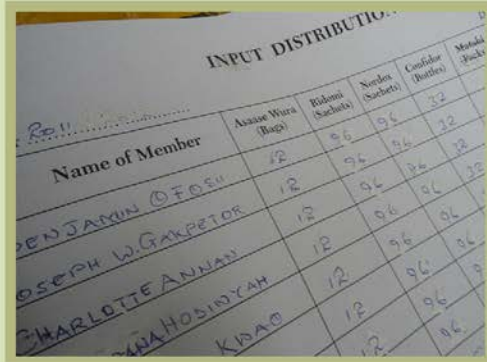 INPUT DISTRIBUTIO
2011
Name of Member Asaase Wura (Bags) Ridomi (Sachets) Nordox (Sachets) Confidor (Bottles)
ENJAMIN OFOSU 12 96 96 32
OSEPH W. GAKPETOR 12 96 96 32
CHARLOTTE ANNAN 12 96 96 32
12 96 96 32
KWAO 12 96 96
12 96 96
12 96